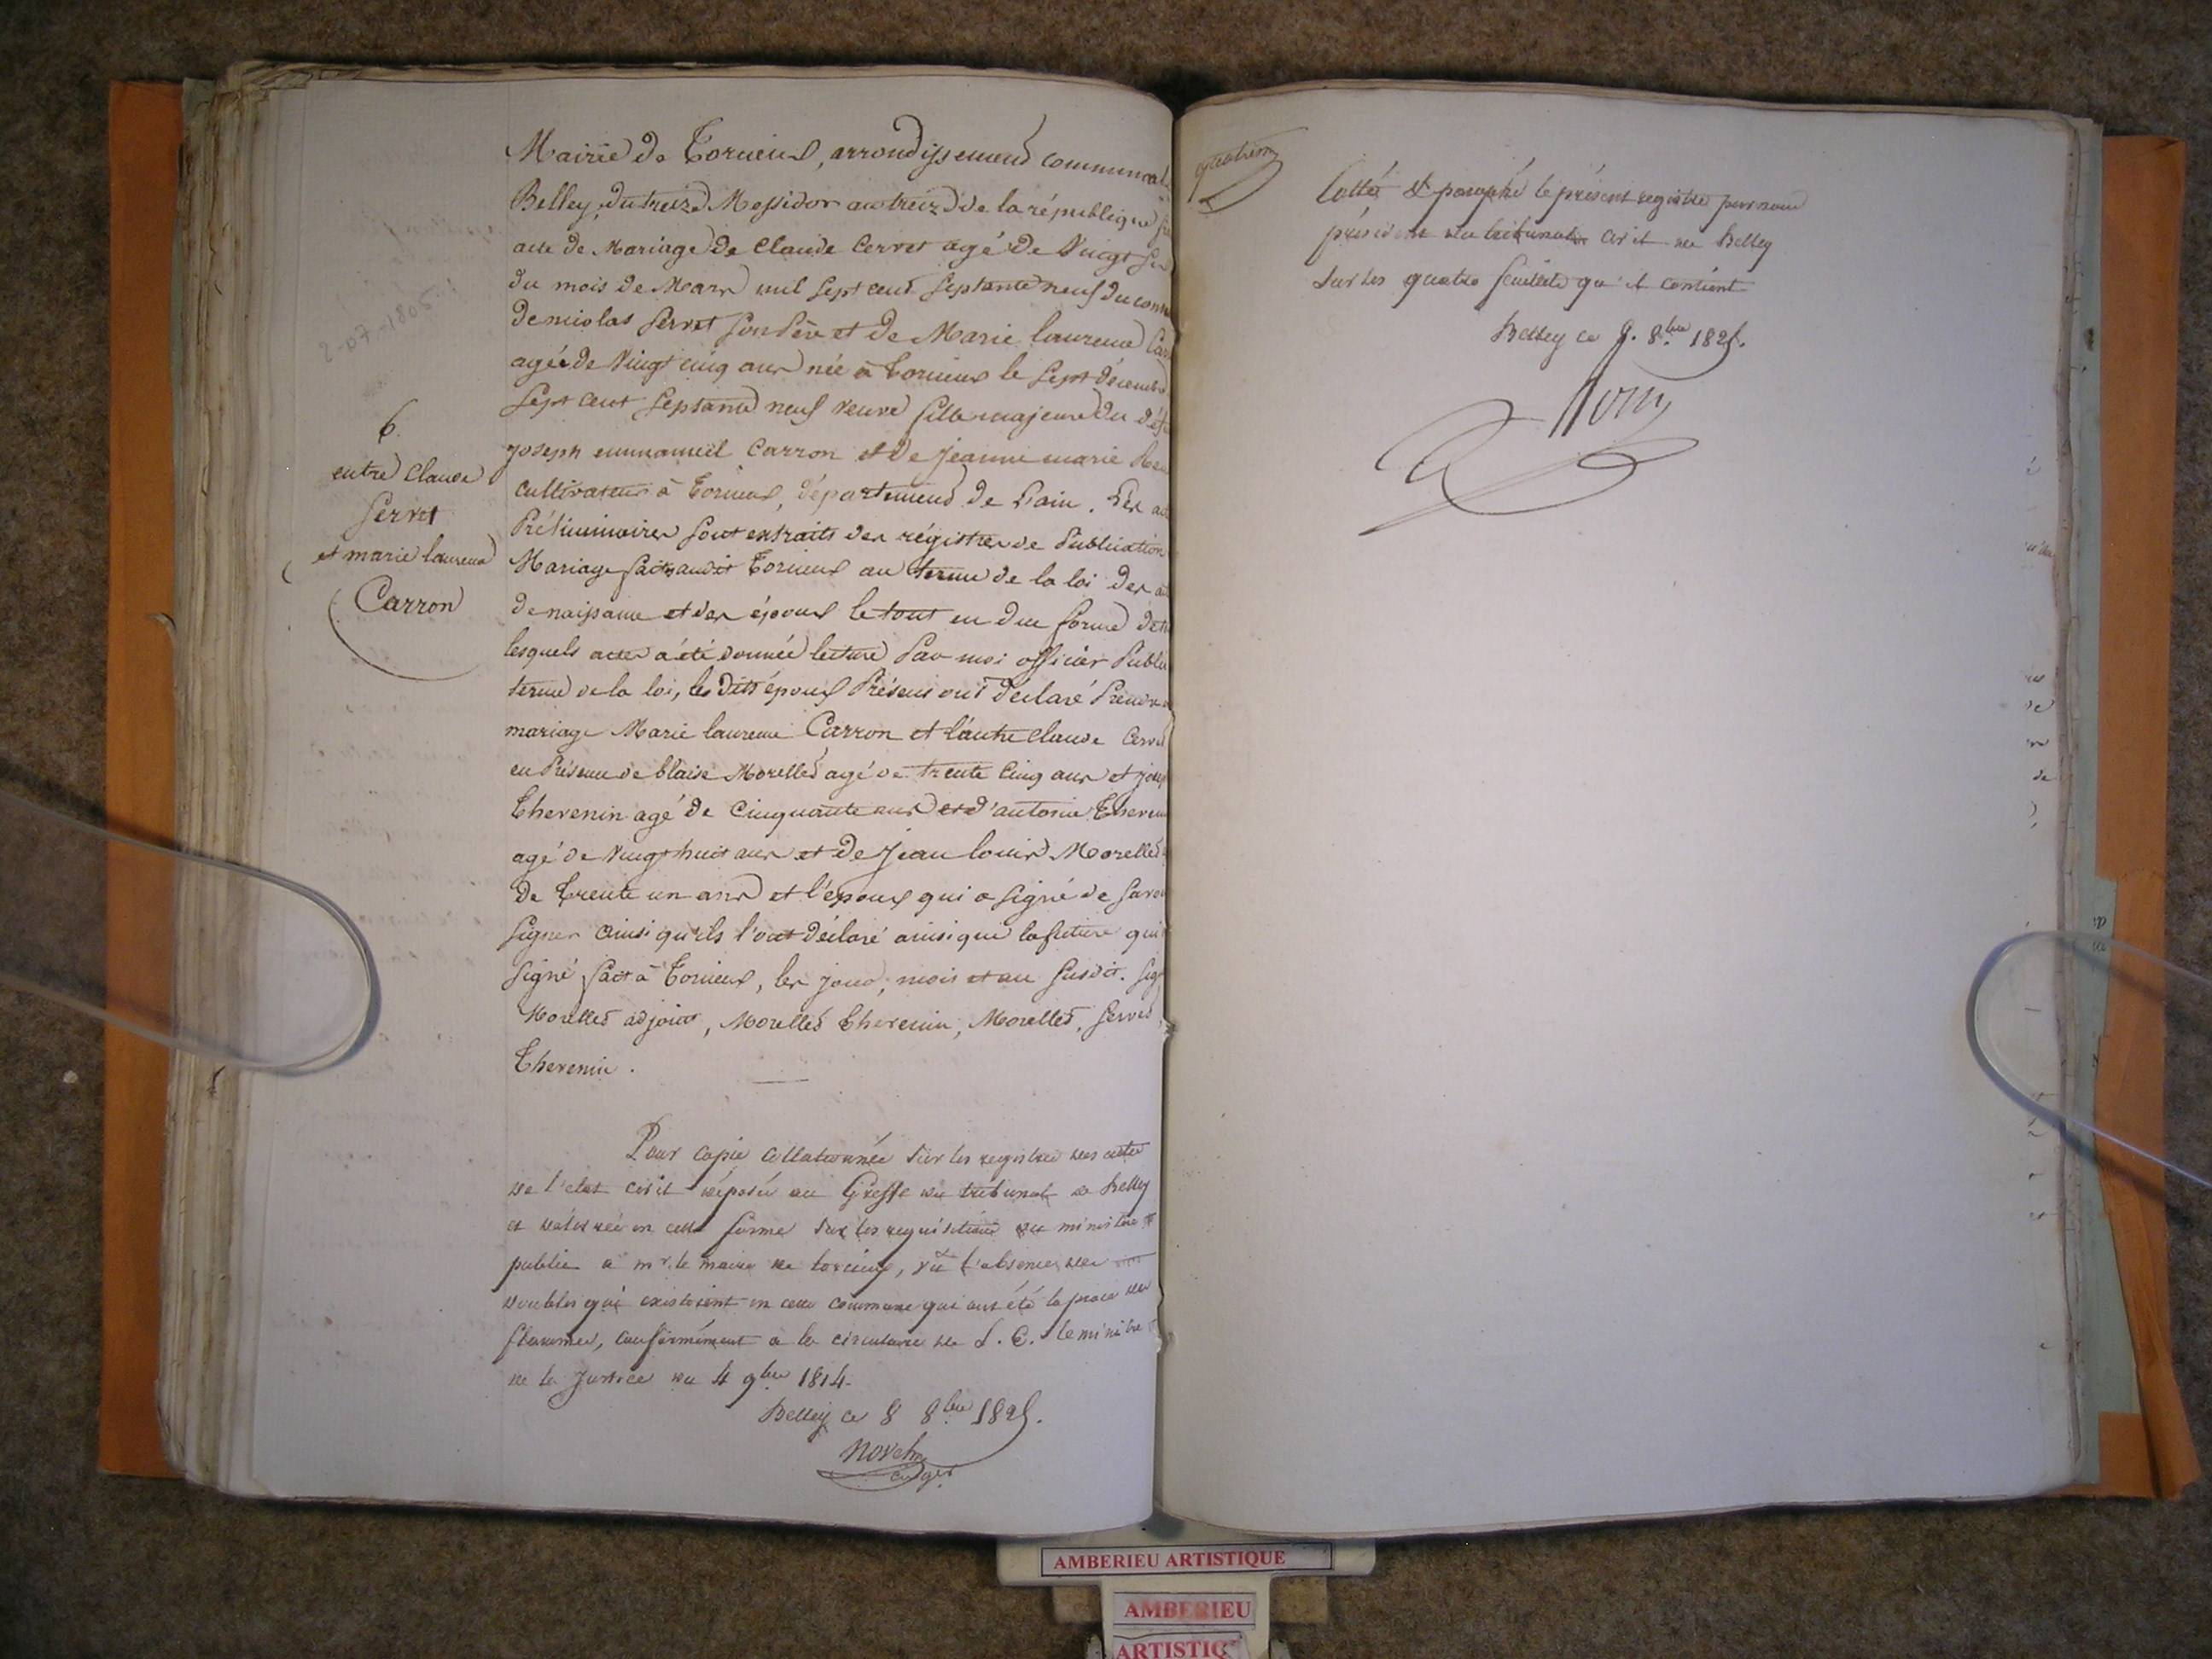 6
entre Claude
Servet
et marie laurence
Carron
Mairie de Torcieux, arrondissement communal
Belley, du treize Messidor an treize de la république
acte de Mariage de Claude Cervet agé de Vingt
du mois de Mars mil sept cent septante neuf du
de nicolas Servet son Père et de Marie laurence
agée de Vingt cinq ans née à Torcieux le sept décembre
sept cent septante neuf veuve fille majeure du
joseph emmanuel Carron et de jeanne marie
cultivateur à Torcieux, département de l'ain. Les
Préliminaires sont extraits des régistres de Publication
Mariage faits audit Torcieux au terme de la loi des
de naissance et des époux le tout en due forme
lesquels actes a été donnée lecture Par moi officier Public
terme de la loi, les dits époux Présens ont déclaré Prendre
mariage Marie laurence Carron et l'autre Claude
en Présence de blaise Morellet agé de trente cinq ans et
Thevenin agé de Cinquante ans et d'antoine Thevenin
agé de Vingt huit ans et de jean louis Morellet
de trente un ans et l'époux qui a signé de
signer ainsi qu'ils l'ont déclaré ainsi que la future qui
signé fait à Torcieux, les jour, mois et an susdit.
Morellet adjoint, Morellet Thevenin, Morellet, Servet
Thevenin.
Pour copie collationnée sur les registres des actes
de l'etat civil déposés au Greffe du tribunal de Belley
et délivrée en cette forme sur les requisitions du ministere
public à mr. le maire de torcieux, vû l'absence des
doubles qui existoient en cette commune qui ont été la proie des
flammes, conformément à la circulaire de S. E. le ministre
de la Justice du 4 9bre 1814.
Belley ce 8 8bre 1825.
quatrieme
Cotté & paraphé le présent registre par nous
président du tribunal civil de Belley
sur les quatre feuillets qu'il contient
Belley ce 8. 8bre 1825.
AMBERIEU ARTISTIQUE
AMBERIEU
ARTISTIQ